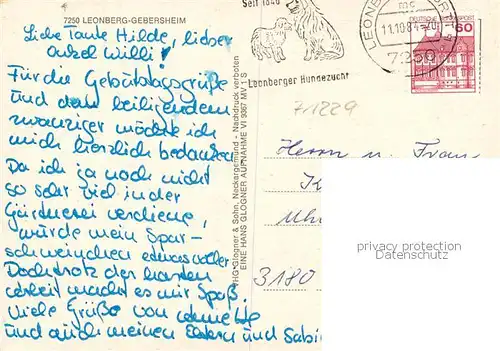 7250 LEONBERG-GEBERSHEIM
Liebe Tante Hilde, lieber
Onkel Willi!
Für die Geburtstagsgrüße
und dem beiligendem
zwanziger möchte ich
mich herzlich bedanken
Da ich ja noch nicht
so sehr viel in der
Gärtnerei verdiene,
würde mein Spar-
schweinchen etwas voller.
Doch trotz der harten
Arbeit macht es mir Spaß.
Viele Grüße von
und auch meinen Eltern und Sabi
HG Glogner & Sohn, Neckargemünd - Nachdruck verboten
EINE HANS GLOGNER AUFNAHME VI 9367 MV 1 S
Seit 1846
Leonberger Hundezucht
LEONBERG
11.10.84-20
7250
DEUTSCHE BUNDESPOST
60
71229
Herrn u. Frau
K
Uhr
3180
privacy protection